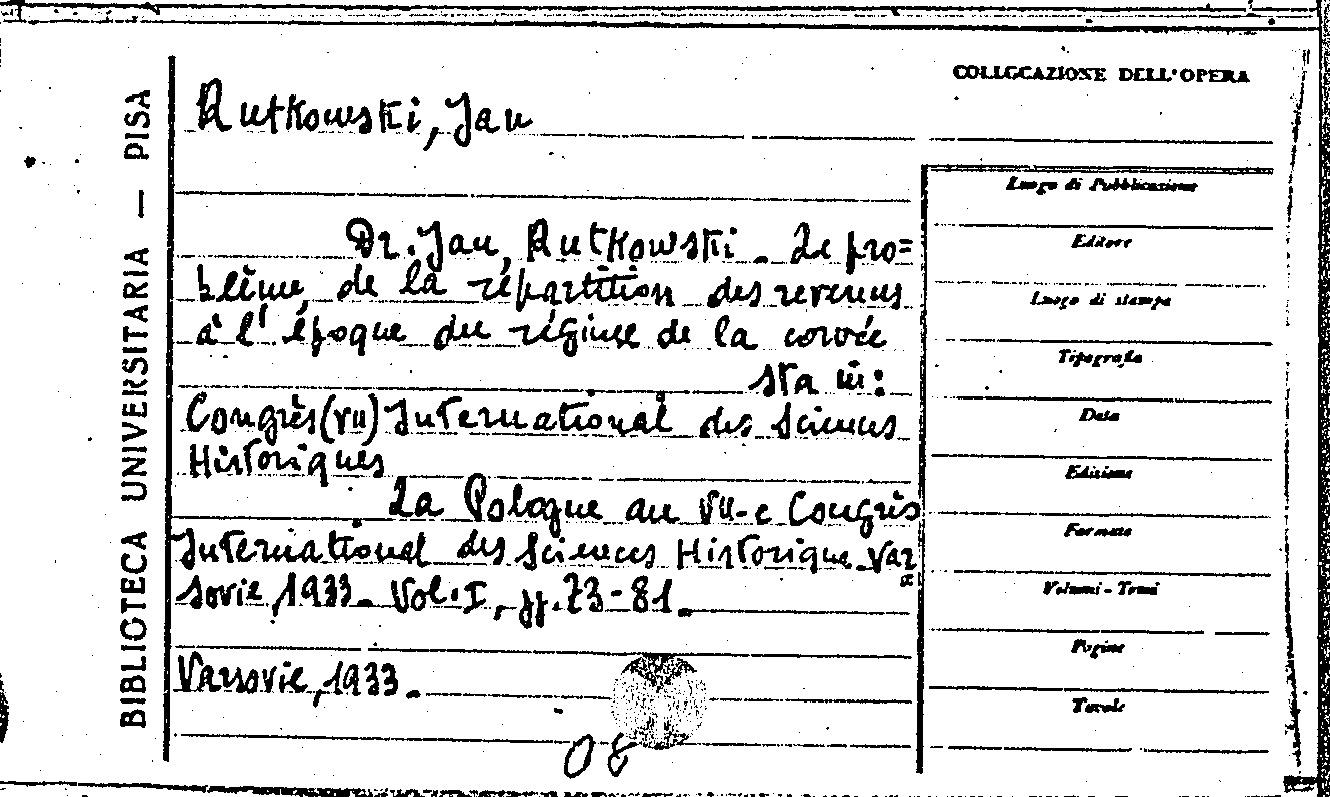 BIBLIOTECA UNIVERSITARIA — PISA
Rutkowski, Jan
Dr. Jan, Rutkowski. Le pro=
blème, de la répartition des revenus
à l'époque du régime de la corvée
sta in:
Congrès (VII) International des Sciences
Historiques
La Pologne au VII-e Congrès
International des Sciences Historique Var
sovie, 1933. Vol. I, pp. 73-81.
Varsovie, 1933.
08
COLLOCAZIONE DELL'OPERA
Luogo di Pubblicazione
Editore
Luogo di stampa
Tipografia
Data
Edizione
Formato
Volumi - Tomi
Pagine
Tavole